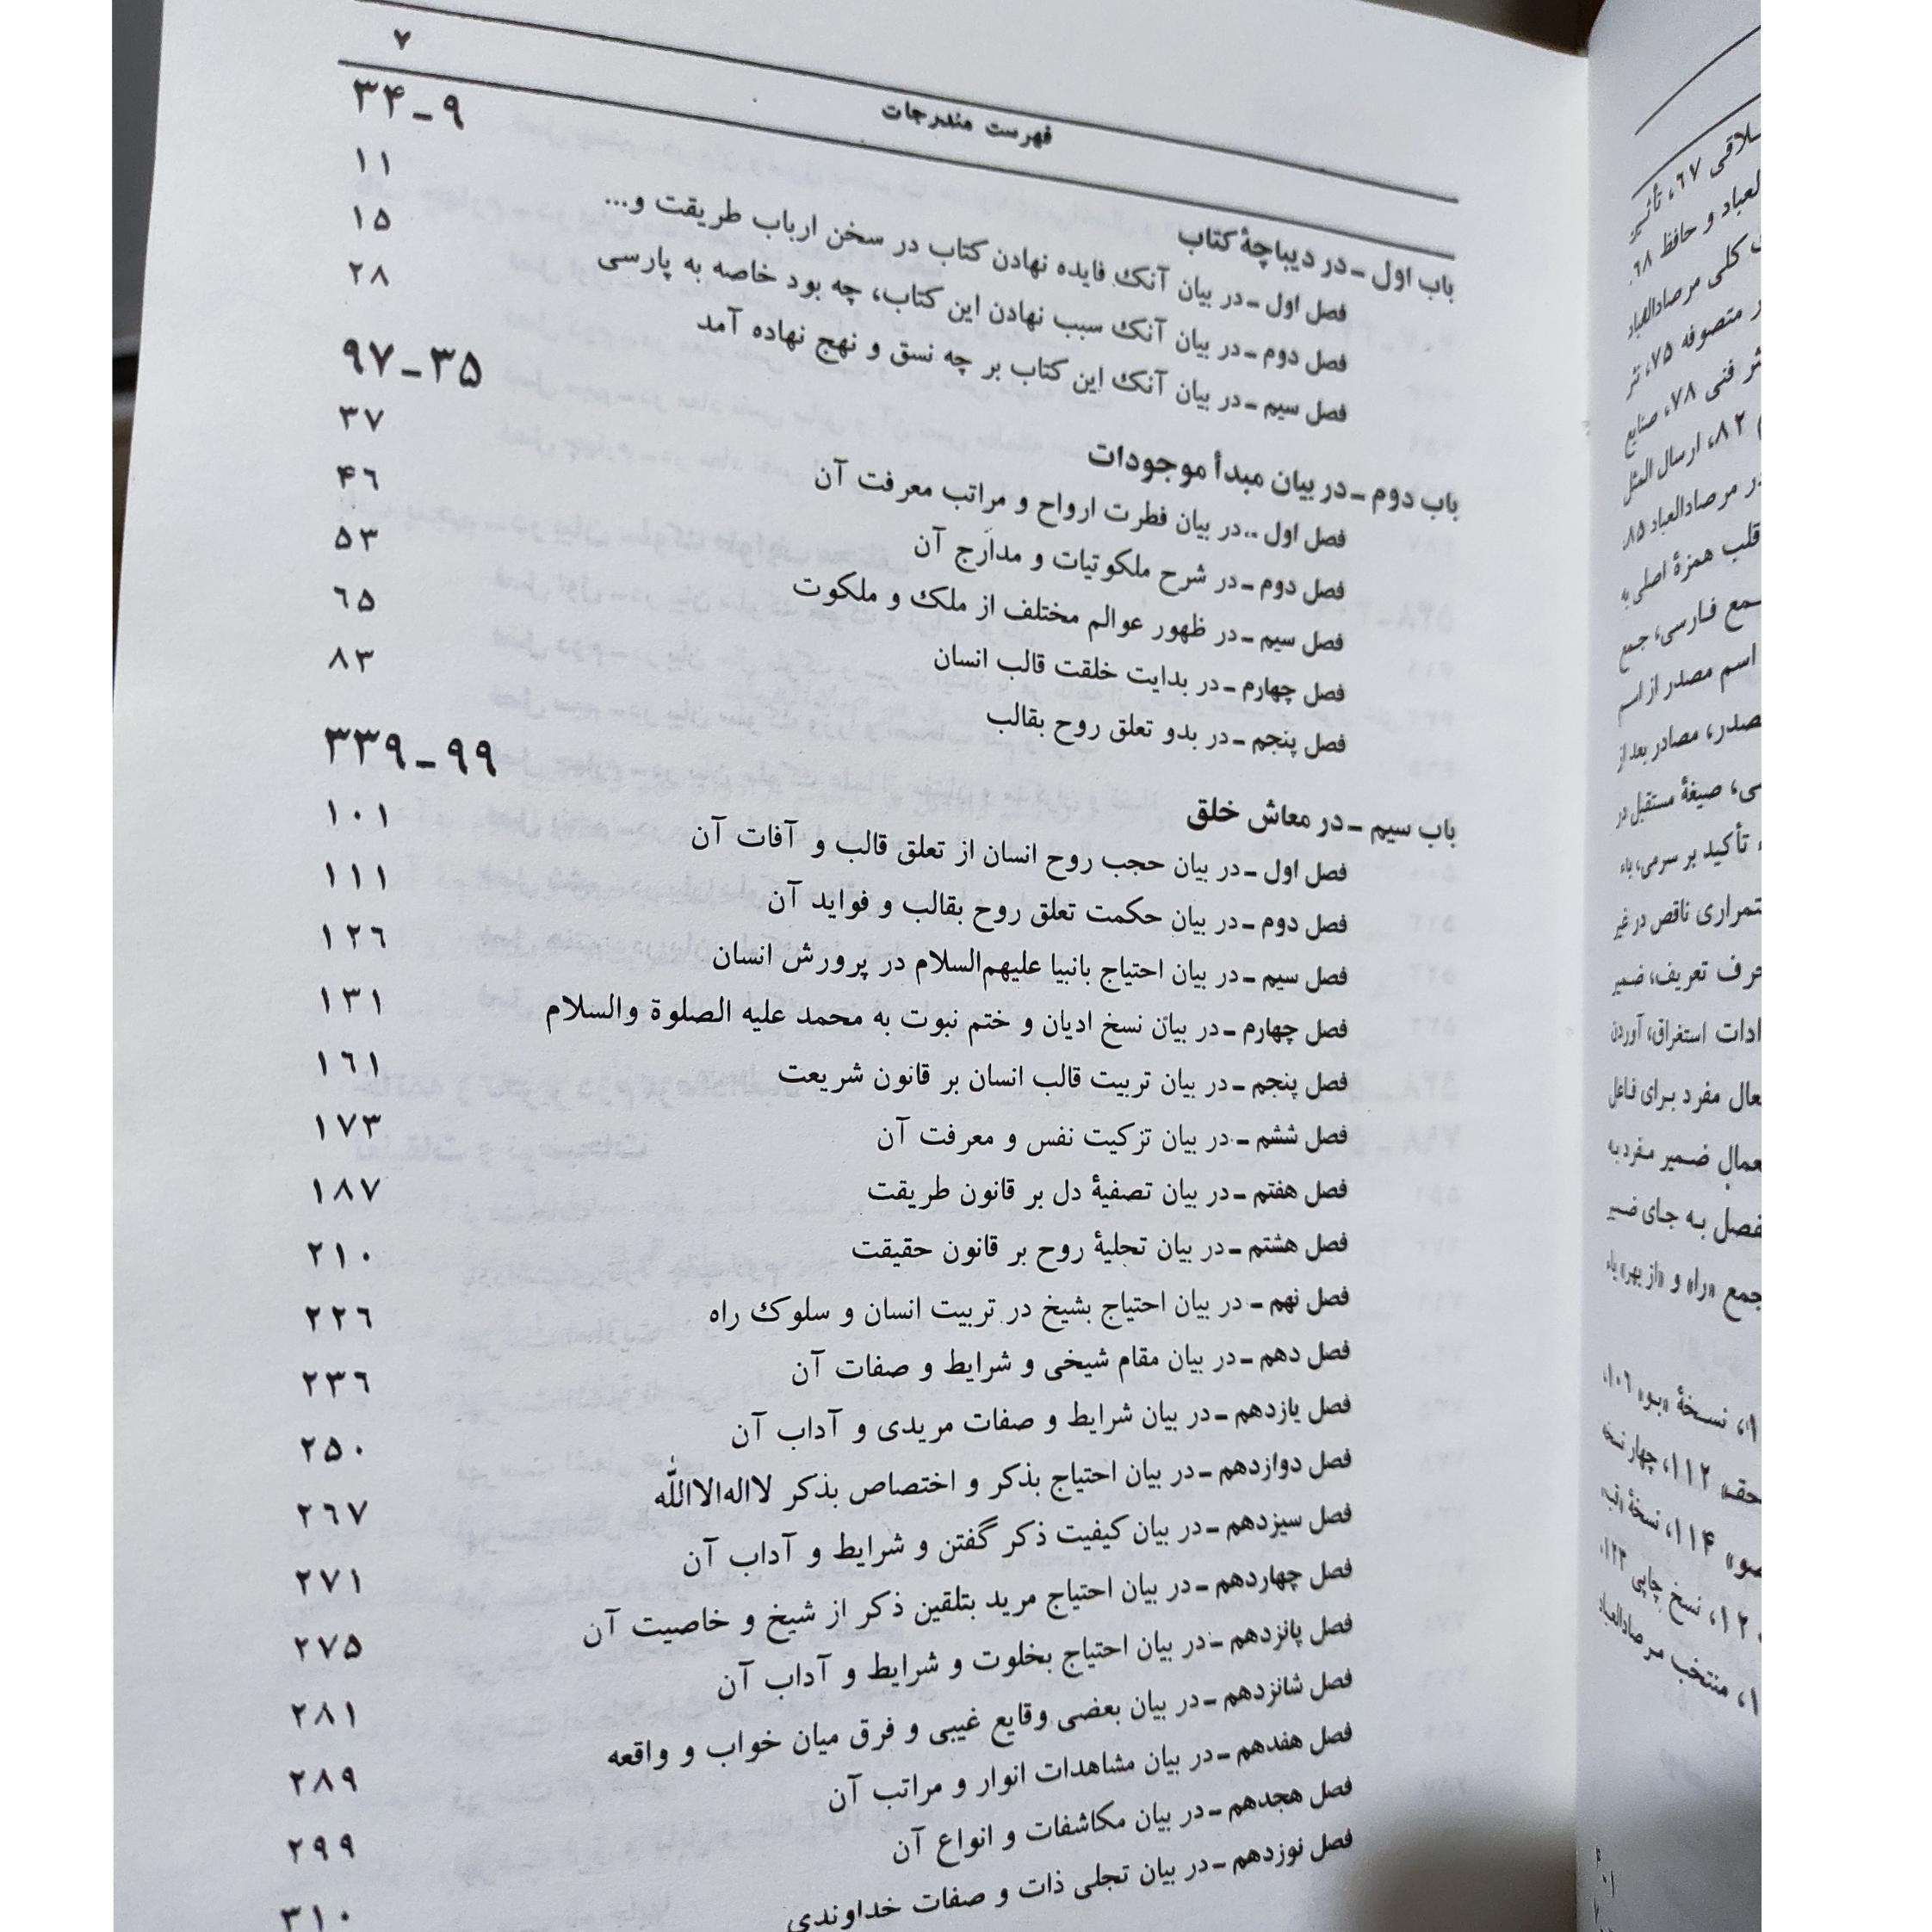 ۷
فهرست مندرجات
باب اول ـ در دیباچهٔ کتاب ۹ـ۳۴
فصل اول ـ در بیان آنک فایده نهادن کتاب در سخن ارباب طریقت و... ۱۱
فصل دوم ـ در بیان آنک سبب نهادن این کتاب، چه بود خاصه به پارسی ۱۵
فصل سیم ـ در بیان آنک این کتاب بر چه نسق و نهج نهاده آمد ۲۸
باب دوم ـ در بیان مبدأ موجودات ۳۵ـ۹۷
فصل اول ـ در بیان فطرت ارواح و مراتب معرفت آن ۳۷
فصل دوم ـ در شرح ملکوتیات و مدارج آن ۴۶
فصل سیم ـ در ظهور عوالم مختلف از ملک و ملکوت ۵۳
فصل چهارم ـ در بدایت خلقت قالب انسان ۶۵
فصل پنجم ـ در بدو تعلق روح بقالب ۸۳
باب سیم ـ در معاش خلق ۹۹ـ۳۳۹
فصل اول ـ در بیان حجب روح انسان از تعلق قالب و آفات آن ۱۰۱
فصل دوم ـ در بیان حکمت تعلق روح بقالب و فواید آن ۱۱۱
فصل سیم ـ در بیان احتیاج بانبیا علیهم‌السلام در پرورش انسان ۱۲۶
فصل چهارم ـ در بیان نسخ ادیان و ختم نبوت به محمد علیه الصلوة والسلام ۱۳۱
فصل پنجم ـ در بیان تربیت قالب انسان بر قانون شریعت ۱۶۱
فصل ششم ـ در بیان تزکیت نفس و معرفت آن ۱۷۳
فصل هفتم ـ در بیان تصفیهٔ دل بر قانون طریقت ۱۸۷
فصل هشتم ـ در بیان تحلیهٔ روح بر قانون حقیقت ۲۱۰
فصل نهم ـ در بیان احتیاج بشیخ در تربیت انسان و سلوک راه ۲۲۶
فصل دهم ـ در بیان مقام شیخی و شرایط و صفات آن ۲۳۶
فصل یازدهم ـ در بیان شرایط و صفات مریدی و آداب آن ۲۵۰
فصل دوازدهم ـ در بیان احتیاج بذکر و اختصاص بذکر لااله‌الاالله ۲۶۷
فصل سیزدهم ـ در بیان کیفیت ذکر گفتن و شرایط و آداب آن ۲۷۱
فصل چهاردهم ـ در بیان احتیاج مرید بتلقین ذکر از شیخ و خاصیت آن ۲۷۵
فصل پانزدهم ـ در بیان احتیاج بخلوت و شرایط و آداب آن ۲۸۱
فصل شانزدهم ـ در بیان بعضی وقایع غیبی و فرق میان خواب و واقعه ۲۸۹
فصل هفدهم ـ در بیان مشاهدات انوار و مراتب آن ۲۹۹
فصل هجدهم ـ در بیان مکاشفات و انواع آن ۳۱۰
فصل نوزدهم ـ در بیان تجلی ذات و صفات خداوندی
۶۷، تأثیر
و حافظ ۶۸،
کلی مرصادالعباد
متصوفه ۷۵، نثر
فنی ۷۸، صنایع
۸۲، ارسال المثل
مرصادالعباد ۸۵،
قلب همزهٔ اصلی به
فارسی، جمع
اسم مصدر از اسم
مصادر بعد از
صیغهٔ مستقبل در
تأکید بر سرمی، باء
ناقص در غیر
حرف تعریف، ضمیر
استغراق، آوردن
مفرد برای فاعل
ضمیر مفرد به
به جای ضمیر
جمع «را» و «از بهر» یاء
نسخهٔ «بو» ۱۰۶،
۱۱۲، چهار نسخه
۱۱۴، نسخهٔ «قب»
نسخ چاپی ۱۲۳،
منتخب مرصادالعباد